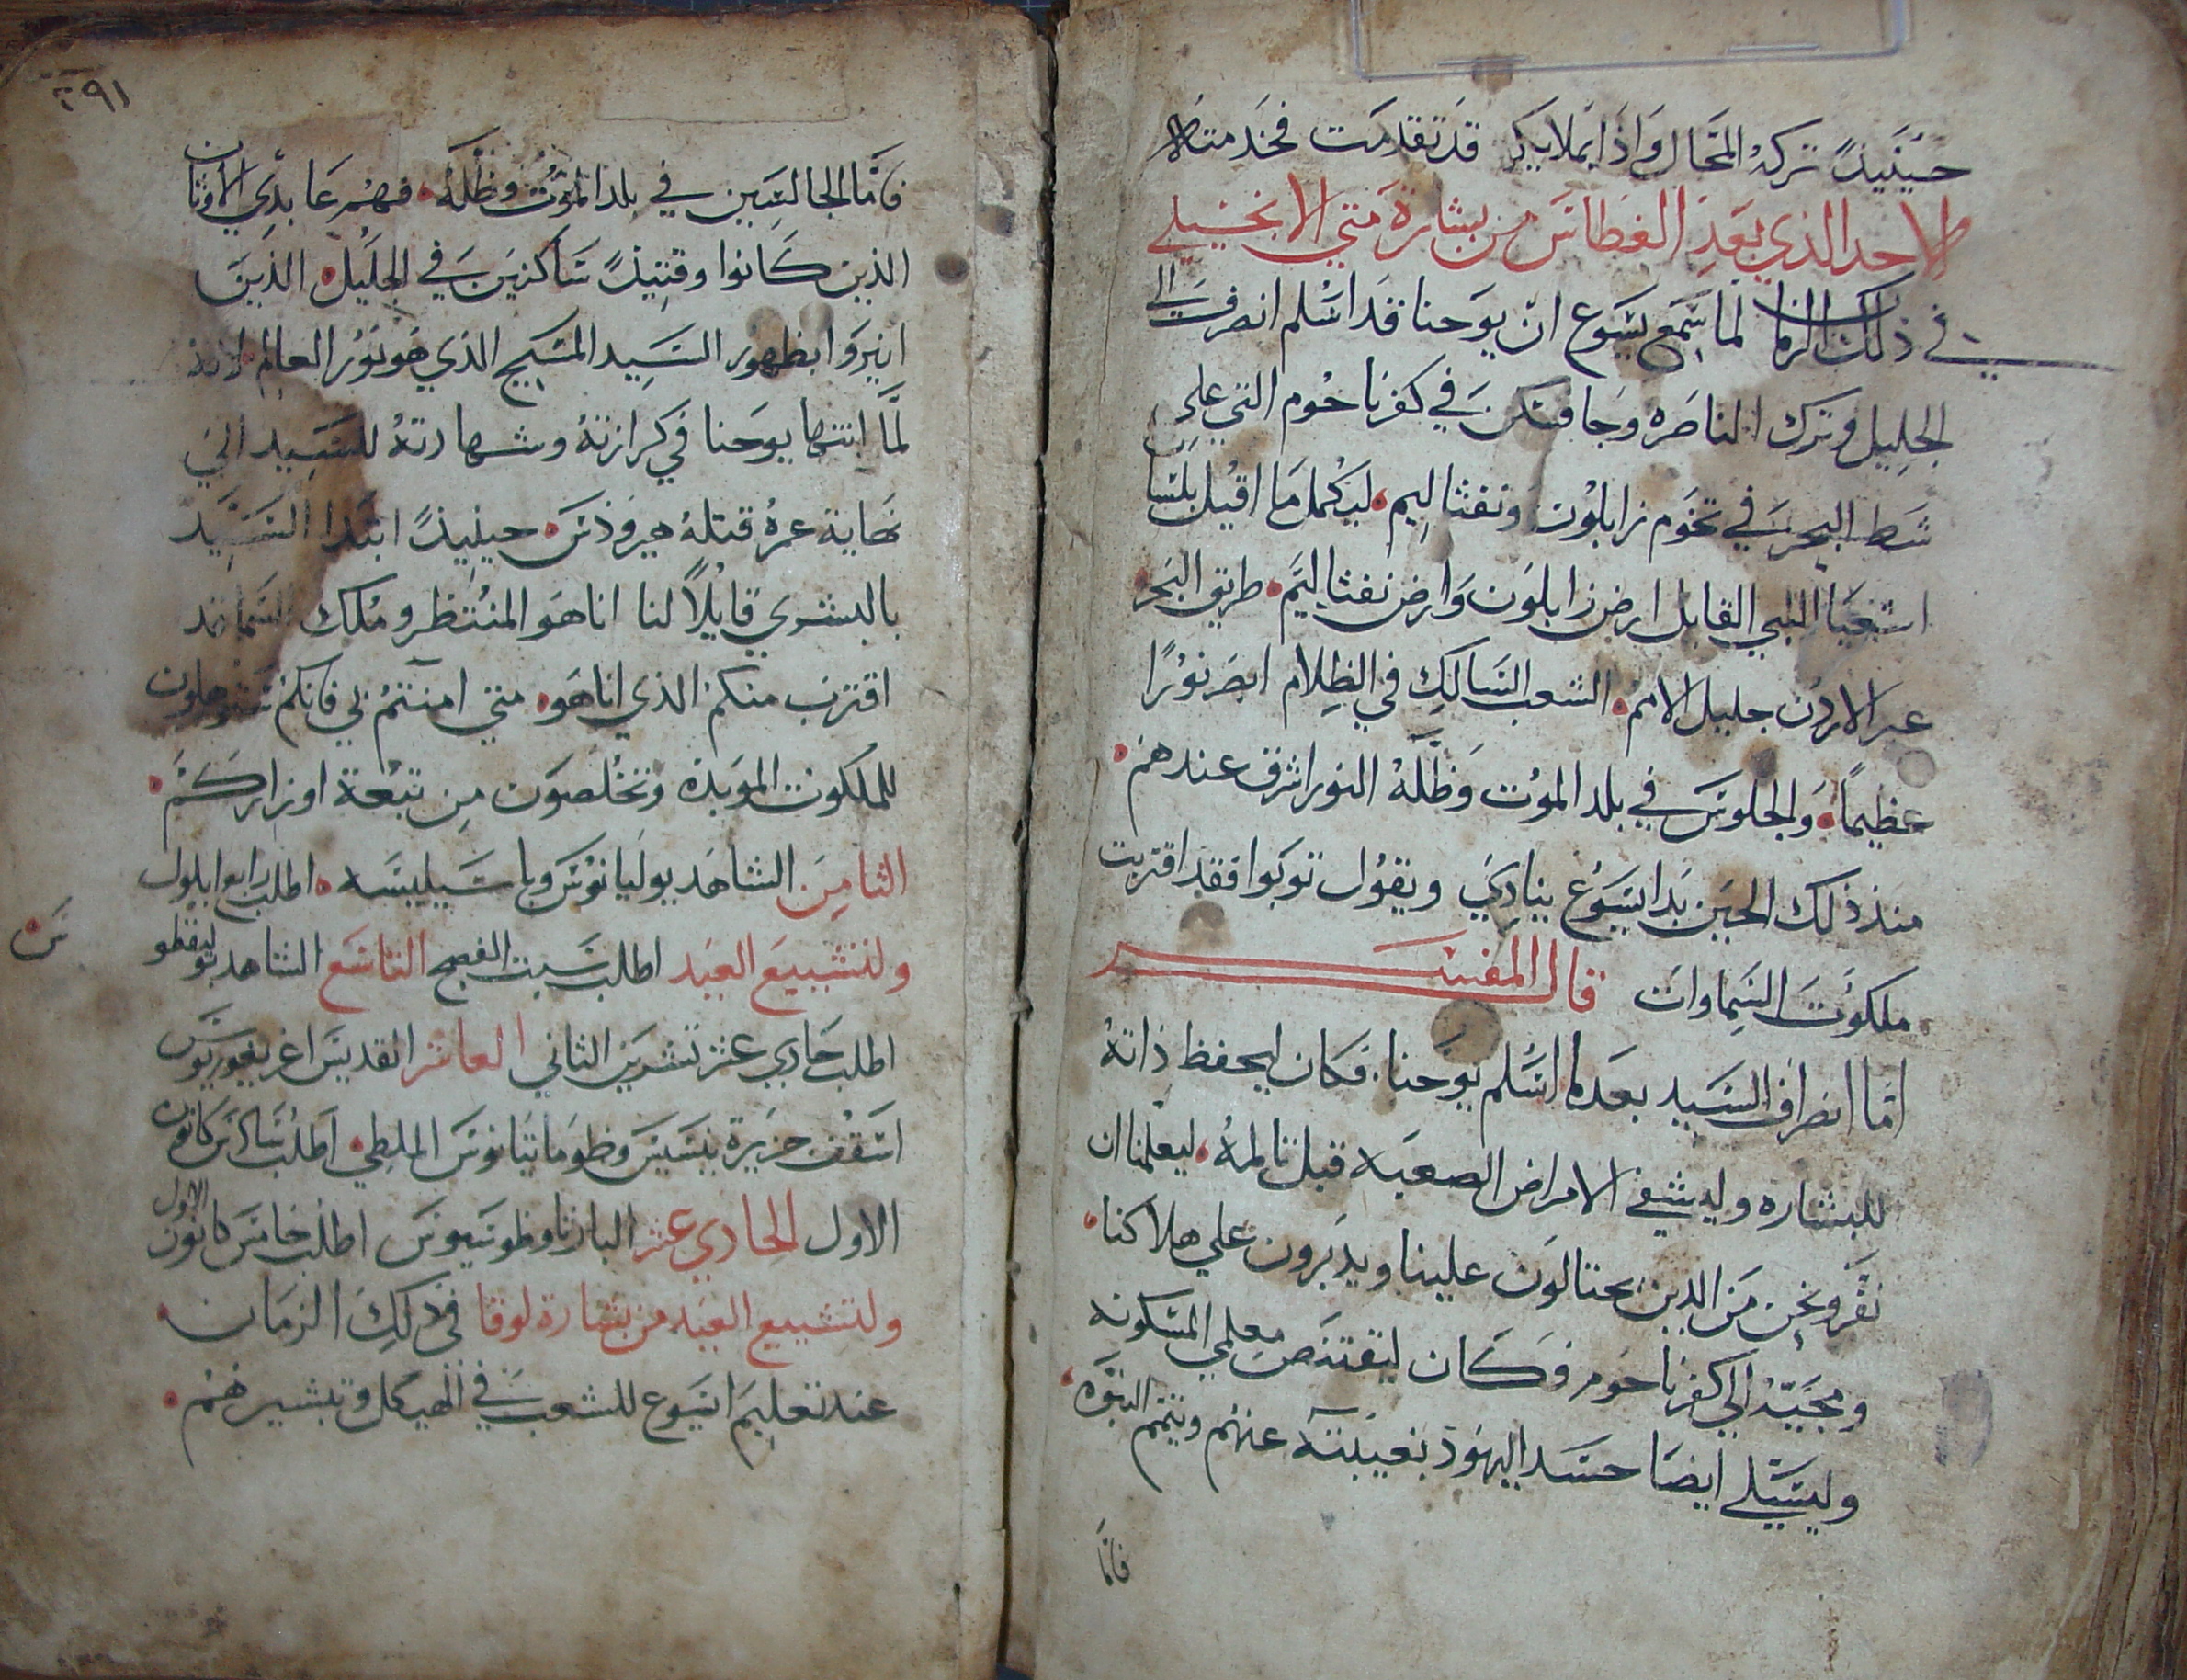 حينيذٍ تركه المحال واذا بملايكه قد تقدمت فخدمته
الاحد الذي بعد الغطاس من بشارة متي الانجيلي
في ذلك الزمان لما سمع يسوع ان يوحنا قد اسلم انصرف الي
الجليل وترك الناصره وجا فسكن في كفرناحوم التي علي
شط البحر في تخوم زابلون ونفتاليم ليكمل ما اقيل بلسان
اشعيا النبي القايل ارض زابلون وارض نفتاليم طريق البحر
عبر الاردن جليل الامم الشعب السالك في الظلام ابصر نورًا
عظيماً والجلوس في بلد الموت وظلله النور اشرق عندهم
منذ ذلك الحين بدا يسوع ينادي ويقول توبوا فقد اقتربت
ملكوت السماوات قال المفسر
اما انصراف السيد بعد ما اسلم يوحنا فكان ليحفظ ذاته
للبشاره وليشفي الامراض الصعبه قبل تالمه ليعلمنا ان
نفر ونحن من الدين يحتالون علينا ويدبرون علي هلاكنا
ومجيّه الي كفرناحوم فكان ليقتنص معلمي المسكونه
وليسلي ايضا حسد اليهود بغيبته عنهم ويتمم النبوه
فامّا
٢٩١
فامّا الجالسين في بلد الموت وظلله فهم عابدي الاوثان
الذين كانوا وقتيذٍ ساكنين في الجليل الذين
انيروا بظهور السيد المسيح الذي هو نور العالم لانه
لمّا انتها يوحنا في كرازته وشهادته للسيد الي
نهاية عمره قتله هيرودس حينيذٍ ابتدا السيد
بالبشري قايلاً لنا انا هو المنتظر وملك السما قد
اقترب منكم الذي انا هو متي امنتم بي فانكم تستوهلون
للملكوت الموبده وتخلصون من تبعة اوزاركم
الثامن الشاهد يوليانوس وباسيليسه اطلب رابع ايلول
ولتشييع العيد اطلب سبت الفصح التاسع الشاهد بوليفظو
س
اطلب حادي عشر تشرين الثاني العاشر القديس اغريغوريوس
اسقف جزيرة نيسيس وظوماتيانوس الملطي اطلب سادس كانون
الاول الحادي عشر البار ثاوظوسيوس اطلب خامس كانون الاول
ولتشييع العيد من بشارة لوقا في ذلك الزمان
عند تعليم ايسوع للشعب في الهيكل وتبشيرهم